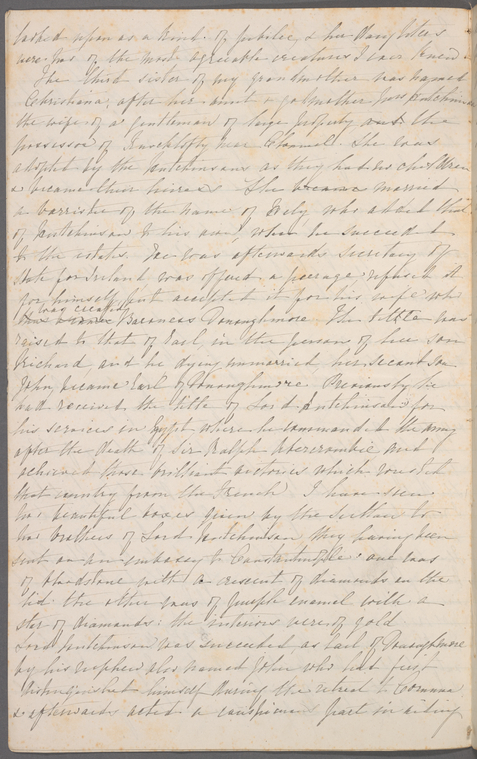 looked upon as a kind of jubilee, & her daughters
were two of the most agreeable creatures I ever knew.
The third sister of my grandmother was named
Christiana, after her aunt & godmother Mrs Hutchinson
the wife of a gentleman of large property and the
possessor of Knocklofty near Clonmel. She was
adopted by the Hutchinsons as they had no children
& became their heiress. She became married
a barrister of the name of Hely, who added that
of Hutchinson to his own, when he succeeded
to the estates. He was afterwards Secretary of
State for Ireland was offered a peerage, refused it
for himself, but accepted it for his wife who
was created
Baroness Donoughmore. The title was
raised to that of Earl, in the person of her son
Richard, and he dying unmarried, her second son
John, became Earl of Donoughmore. Previously he
had received the title of Lord Hutchinson for
his services in Egypt where he commanded the army
after the death of Sir Ralph Abercrombie and
achieved those brilliant victories which
that country from the French. I have seen
two beautiful boxes given by the Sultan to
two brothers of Lord Hutchinson they having been
sent on an embassy to Constantinople: one was
of bloodstone with a crescent of diamonds on the
lid the other was of purple enamel with a
star of diamonds: the interiors were of gold
Lord Hutchinson was succeeded, as Earl of Donoughmore
by his nephew also named John who had first
distinguished himself during the retreat to Corunna,
& afterwards acted a conspicuous part in aiding